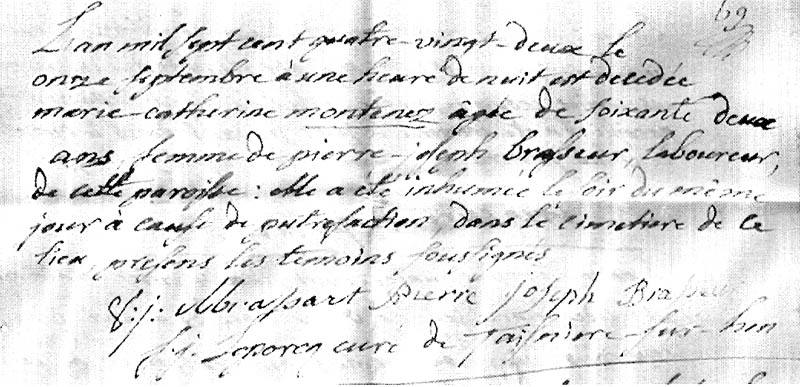 69
L'an mil sept cent quatre-vingt-deux le
onze septembre à une heure de nuit est decedée
marie-catherine montenez âgée de soixante deux
ans, femme de pierre-joseph brasseur, laboureur,
de cette paroisse : elle a été inhumée le soir du même
jour à cause de putrefaction, dans le cimetiere de ce
lieu présens les temoins soussignés
Pierre joseph Brasseur
curé de taisniere-sur-hon